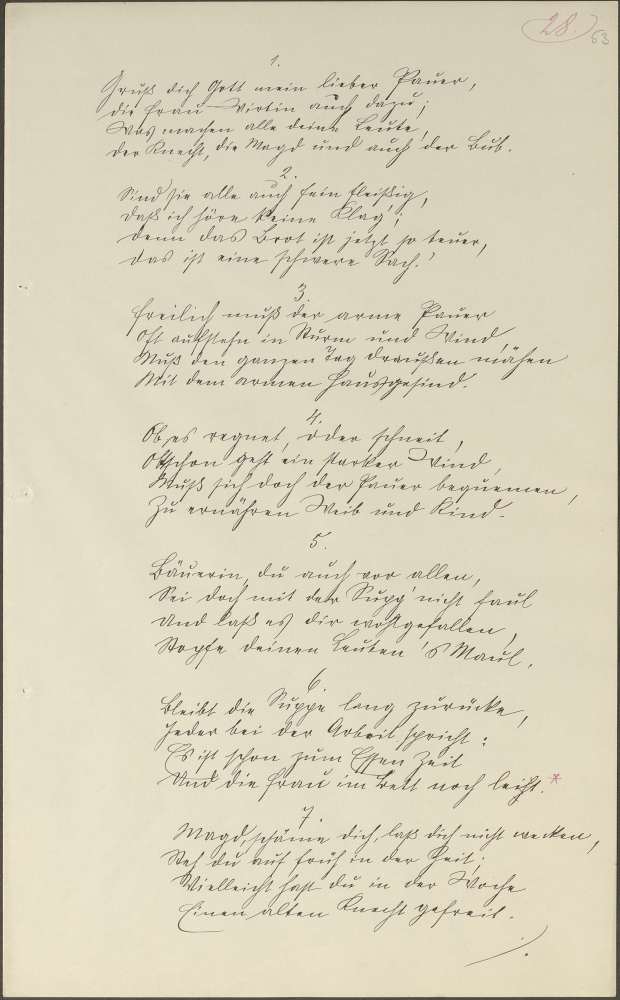 28.
63
1.
Grüß dich Gott mein lieber Pauer,
die Frau Wirtin auch dazu;
Was machen alle deine Leute,
der Knecht, die Magd und auch der Bub.
2.
Sind sie alle auch fein fleißig,
Daß ich höre keine Klag';
Denn das Brot ist jetzt so teuer,
Das ist eine schwere Sach.'
3.
Freilich muß der arme Pauer
Oft aufstehn in Sturm und Wind,
Muß den ganzen Tag draußen mähen
Mit dem armen Hausgesind.
4.
Ob es regnet, oder schneit,
Obschon geht ein starker Wind,
Muß sich doch der Pauer bequemen,
Zu ernähren Weib und Kind.
5.
Bäuerin, du auch vor allen,
Sei doch mit der Supp' nicht faul
Und laß es dir wohlgefallen,
Stopfe deinen Leuten 's Maul.
6.
Bleibt die Suppe lang zurücke,
Jeder bei der Arbeit spricht:
Es ist schon zum Essen Zeit
Und die Frau im Bett noch leiht.*
7.
Magd, schäme dich, laß dich nicht wecken,
Steh du auf früh in der Zeit;
Vielleicht hast du in der Woche
Einen alten Knecht gefreit.
./.